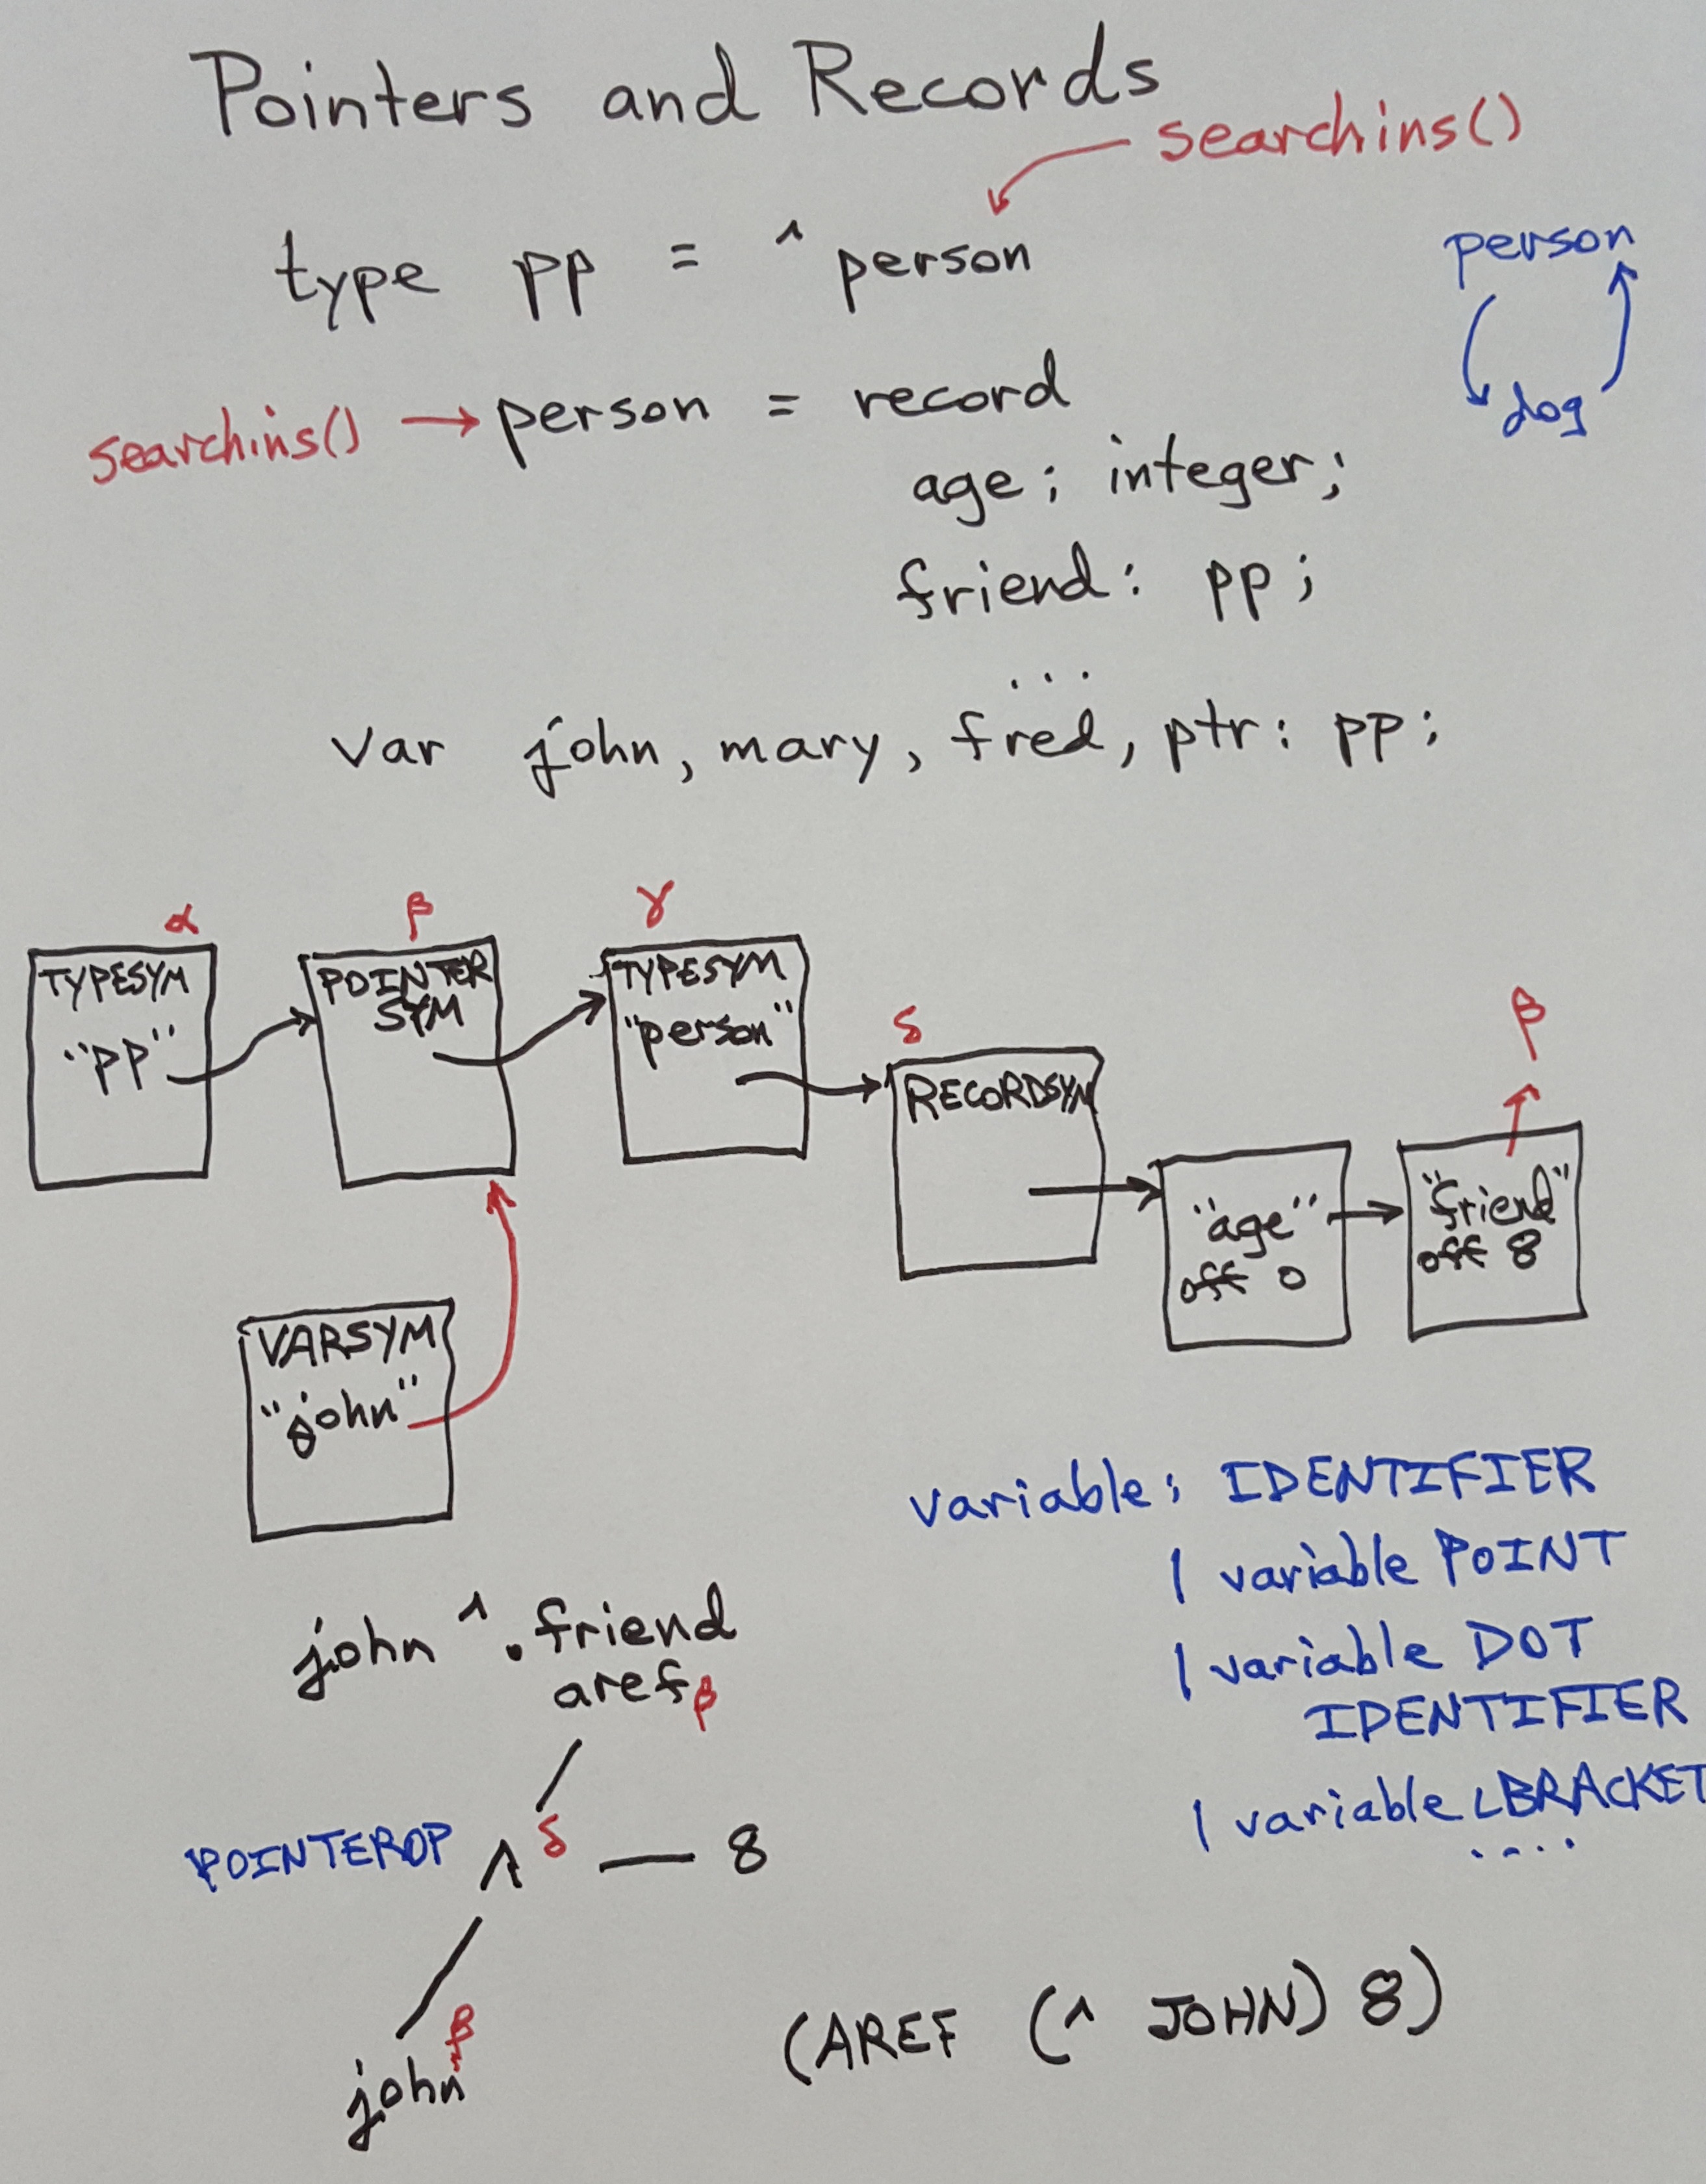 Pointers and Records
searchins()
type pp = ^ person
person
searchins() → person = record
dog
age : integer;
friend : pp ;
...
var john, mary, fred, ptr : pp ;
α β γ
TYPESYM
"pp"
POINTER
SYM
TYPESYM
"person"
δ
RECORDSYM
β
"age"
off 0
"friend"
off 8
VARSYM
"john"
variable : IDENTIFIER
| variable POINT
| variable DOT
IDENTIFIER
| variable LBRACKET
....
john ^ . friend
aref β
POINTEROP ^ δ — 8
john β
(AREF (^ JOHN) 8)